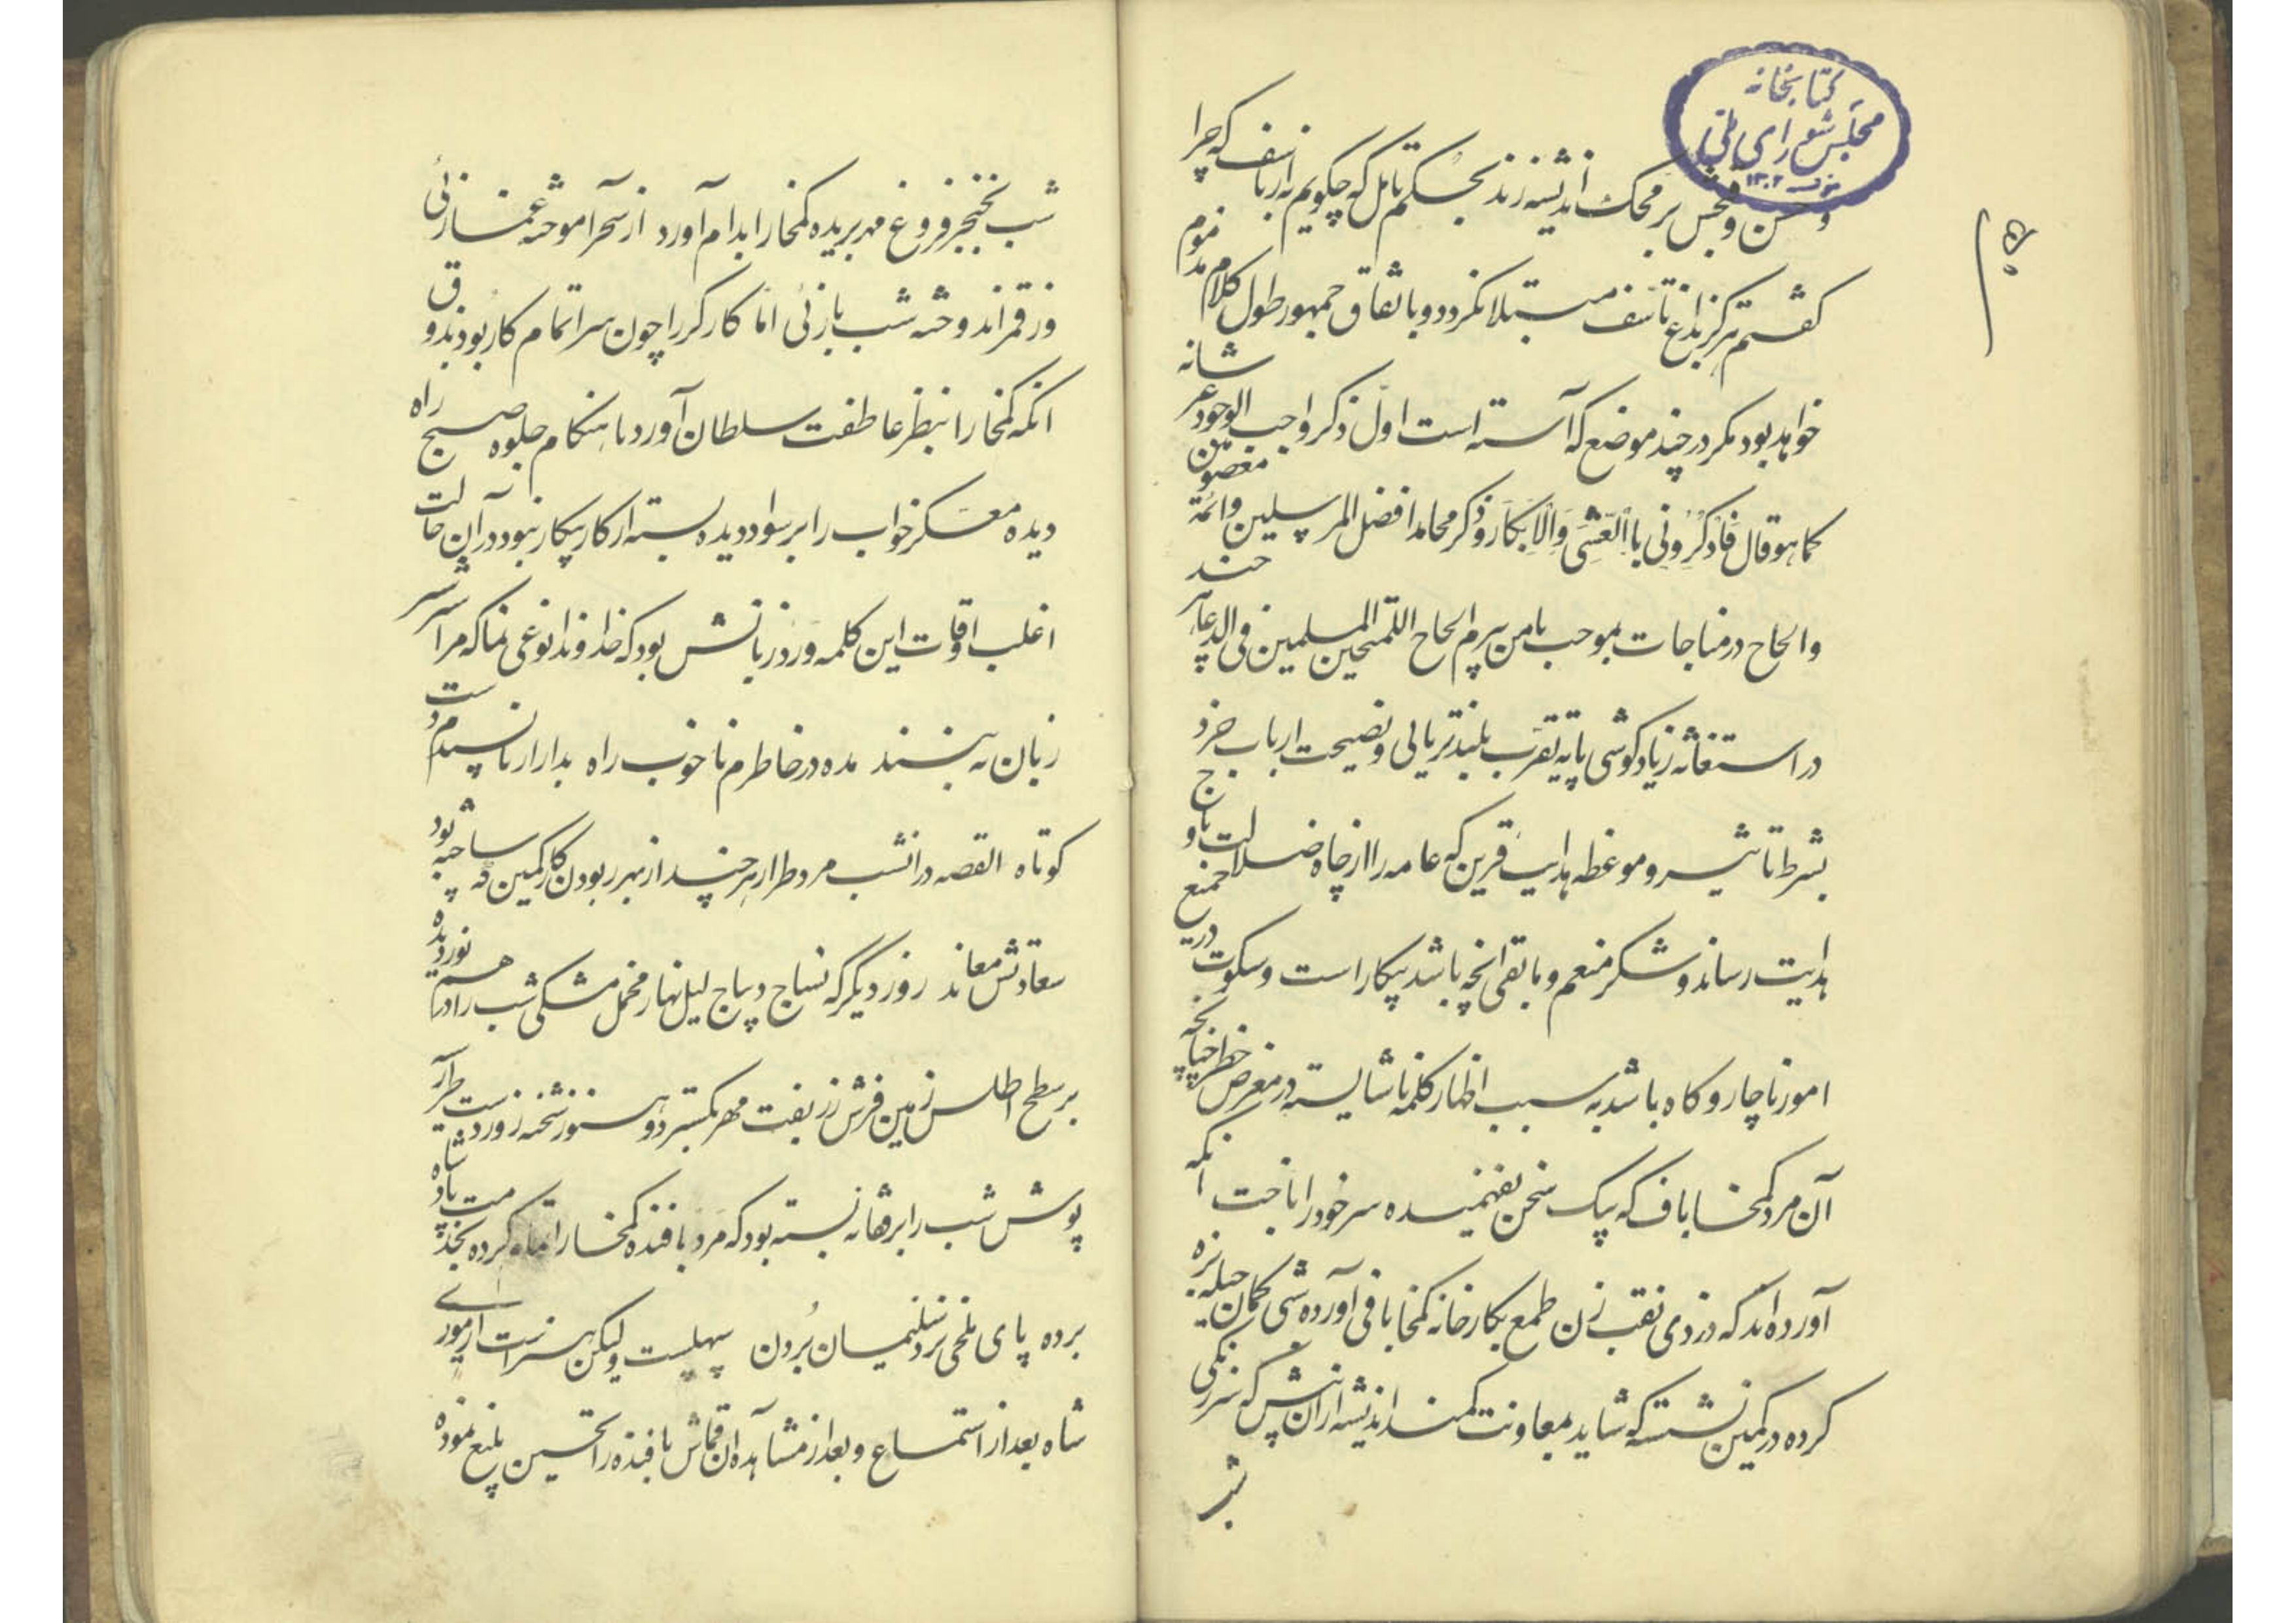 کتابخانه
مجلس شورای ملی
۱۳۰۲
و حسن و قبحش بر محک اندیشه زند بحکم تامل که چگویم به از تاسف که چرا
گفتم هرگز بداغ تاسف مبتلا نگردد و باتفاق جمهور طول کلام مذموم
خواهد بود مگر در چند موضع که آراسته است اول ذکر واجب الوجود عز شانه
کما هو قال فَاذْکُرُونی بِاالْعَشِی وَالْاِبکار و ذکر محامد افضل المرسلین و ائمة معصومین
والحاح در مناجات بموجب یا من یبرم الحاح الملحین المسلمین فی الدعا هر چند
در استغاثه زیاد کوشی پایه تقرب بلندتر یابی و نصیحت ارباب خرد
بشرط تاثیر و موعظه هدایت قرین که عامه را از چاه ضلالت باوج
هدایت رساند و شکر منعم و مابقی آنچه باشد بیکار است و سکوت در جمیع
امور ناچار و گاه باشد به سبب اظهار کلمه ناشایسته در معرض خطر چنانچه
آن مرد کمخا باف که بیک سخن نفهمیده سرخود را باخت آنکه
آورده‌اند که دزدی نقب زن طمع بکارخانه کمخا بافی آورده شبی کمان حیله بزه
کرده در کمین نشسته که شاید بمعاونت کمند اندیشه از آن پس که سر زنگی
شب
شب بخنجر فروغ مهر بریده کمخا را بدام آورد از سحر آموخته غمازئی
وز قمر اندوخته شب بازئی اما کارگر را چون سر اتمام کار بود بذوق
انکه کمخا را بنظر عاطفت سلطان آورد تا هنگام جلوه صبح راه
دیده معسکر خواب را بر سواد دیده بسته از کار بیکار نبود در آن حالت
اغلب اوقات این کلمه ورد زبانش بود که خداوندا نوعی نما که مرا شر سر
زبان نه بینند مده در خاطرم ناخوب راه بدار از ناپسندم دست
کوتاه القصه در انشب مرد طرار هر چند از بهر ربودن کار کمین ساخته بود چه
سعادتش معاند روز دیگر که نساج دیباج لیل نهار مخمل مشکی شب را درهم نوردیده
بر سطح اطلس زمین فرش زربفت مهر بگسترد و هنوز شحنه روز دست طرار
پوش شب را بر قفا نه بسته بود که مرد بافنده کمخا را تمام کرده بخدمت پادشاه
برده پای ملخی نزد سلیمان بُردن سهلیست ولیکن هنراست از موری
شاه بعد از استماع و بعد از مشاهده آن قماش بافنده را تحسین بلیغ نموده